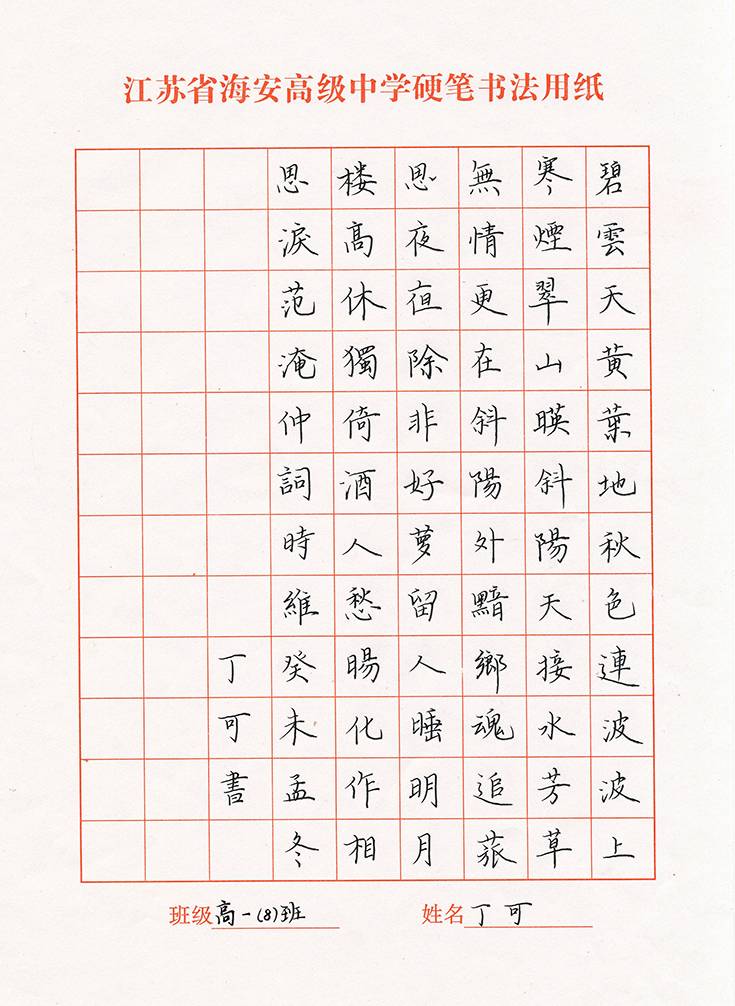 江苏省海安高级中学硬笔书法用纸
碧雲天黃葉地秋色連波波上
寒煙翠山暎斜陽天接水芳草
無情更在斜陽外黯鄉魂追旅
思夜夜除非好夢留人睡明月
楼高休獨倚酒人愁暘化作相
思淚范淹仲詞時維癸未孟冬
丁可書
班级高一(8)班 姓名丁可